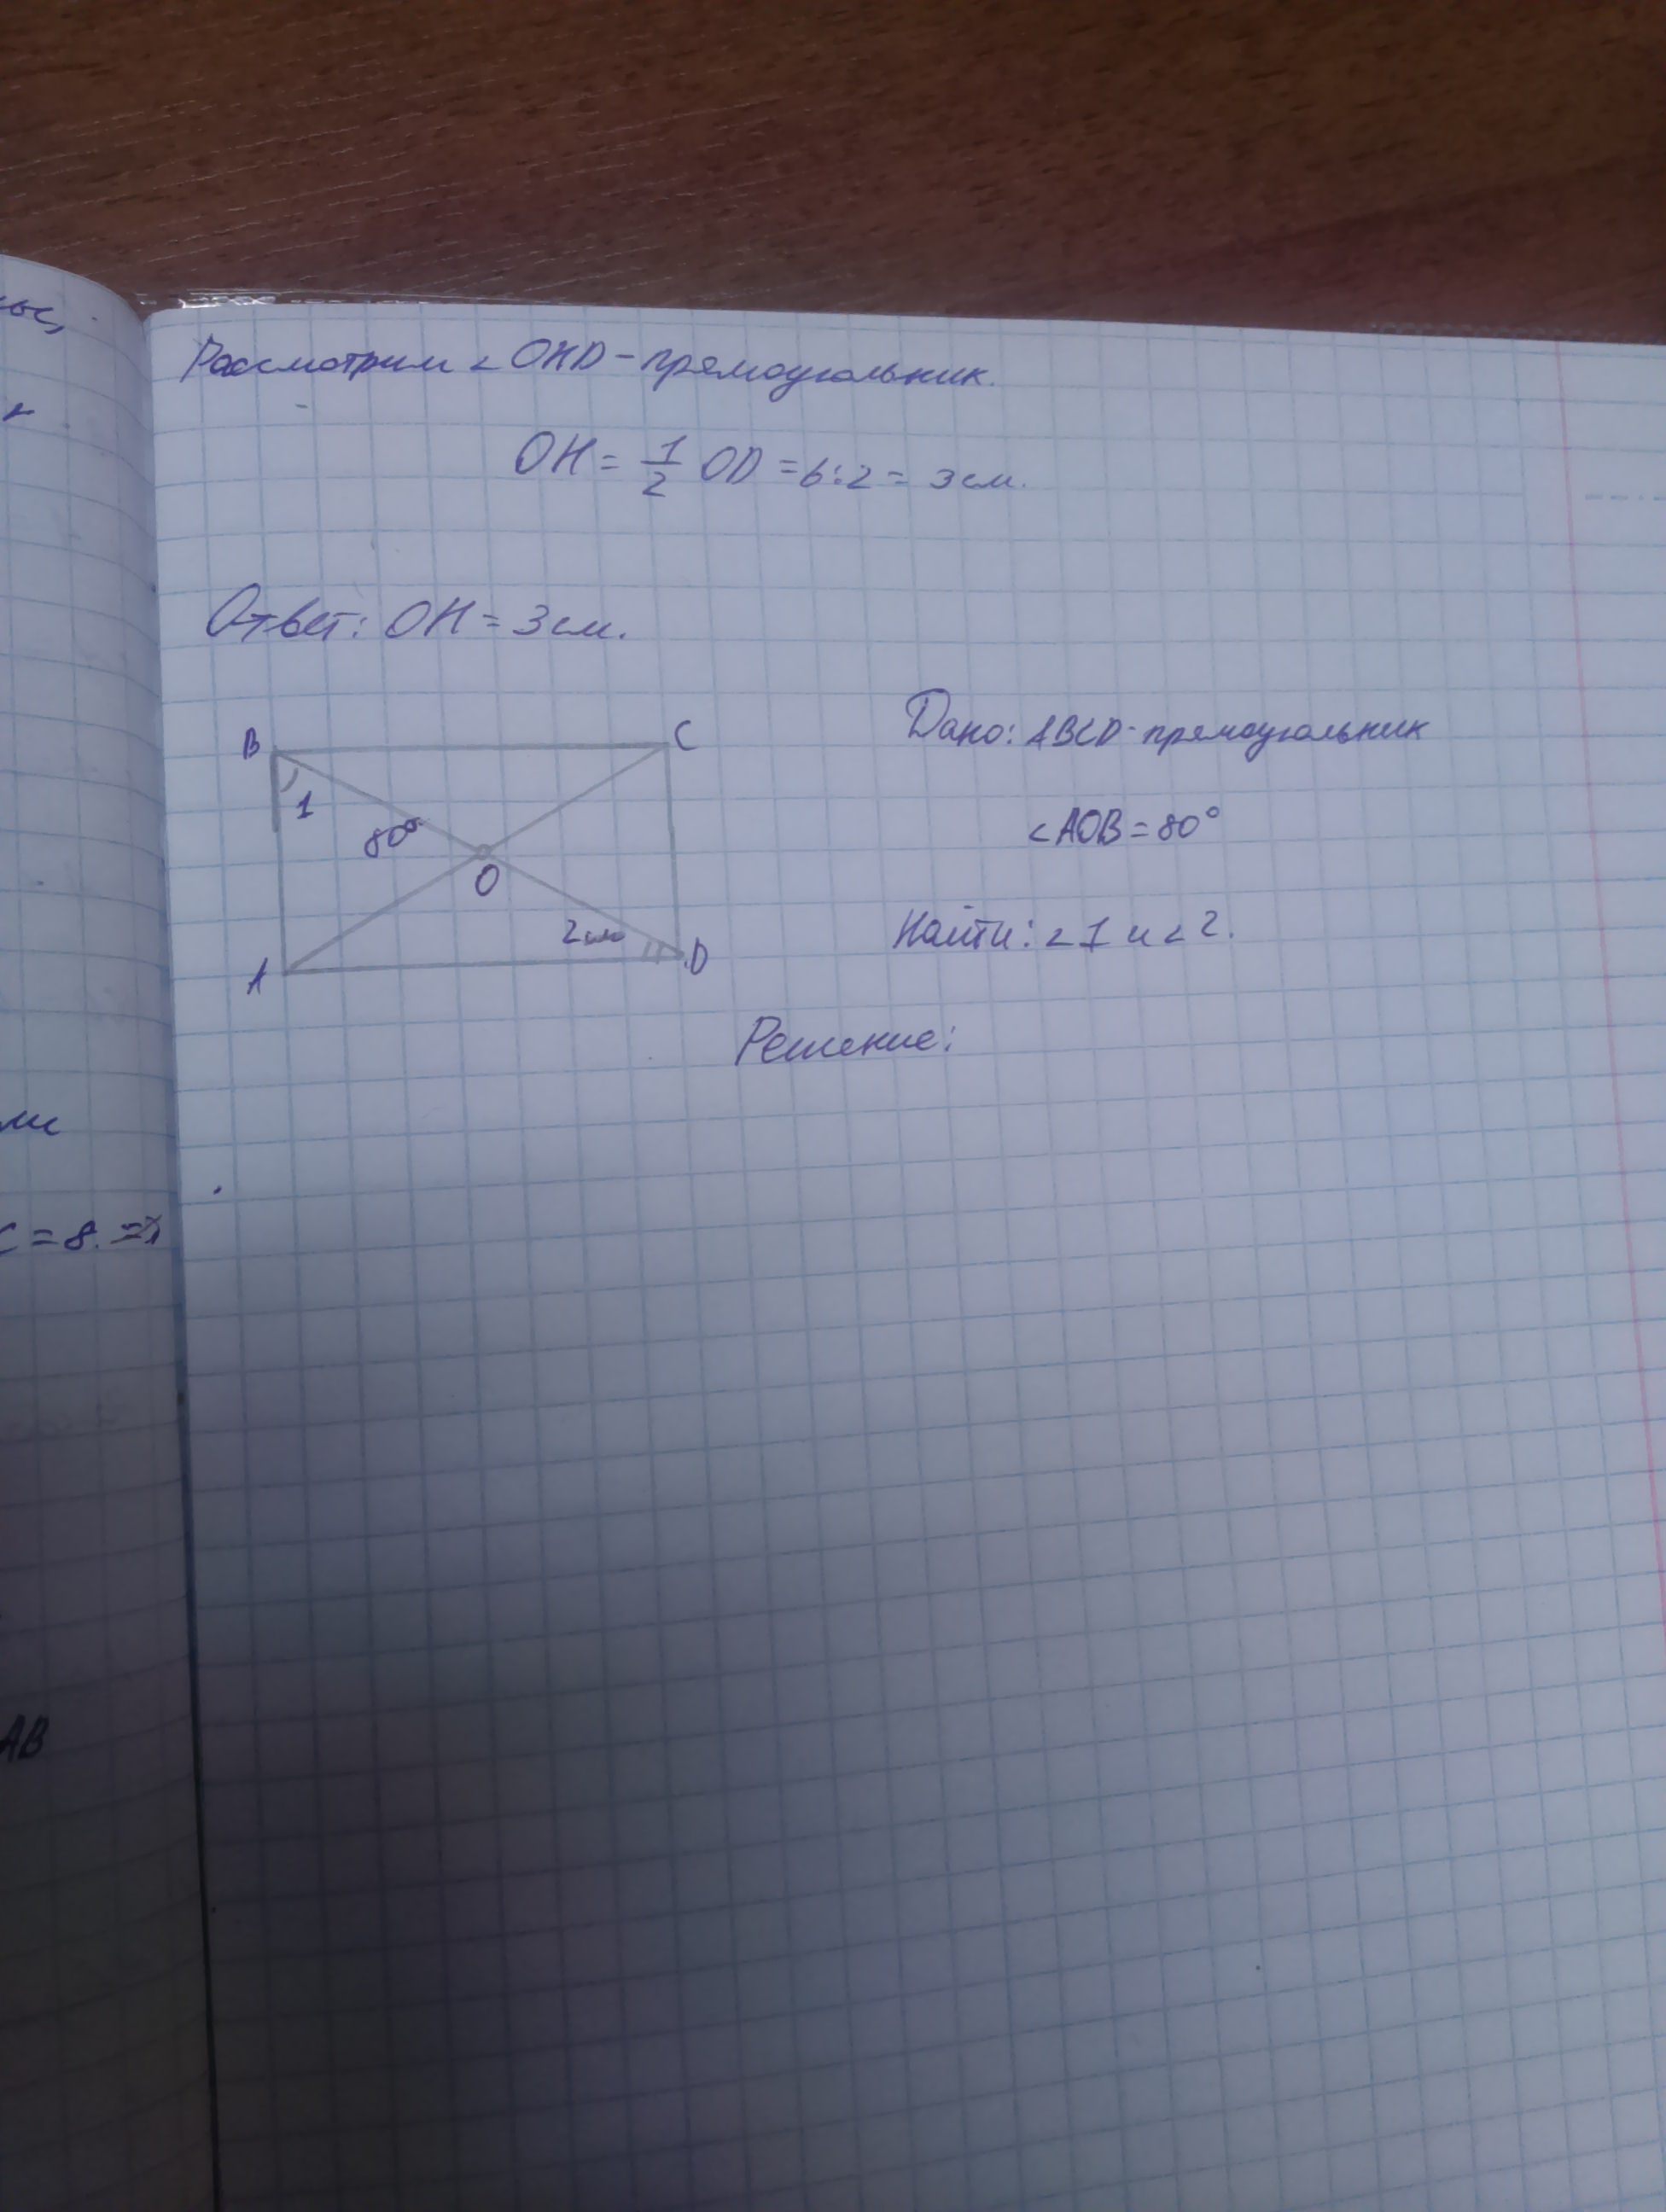 Рассмотрим < OHD - прямоугольник.
OH = 1/2 OD = 6:2 = 3 см.
Ответ: OH = 3 см.
B
C
1
80°
O
2
A
D
Дано: ABCD - прямоугольник
< AOB = 80°
Найти: < 1 и < 2.
Решение:
C = 8. =>
AB